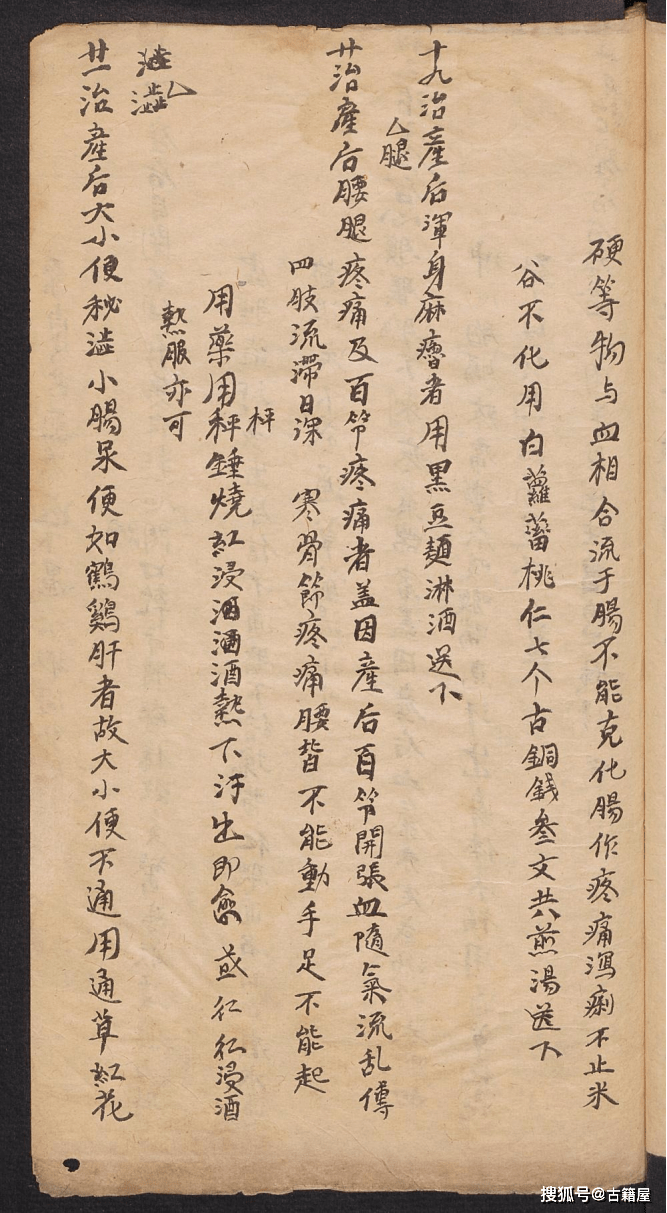 硬等物与血相合流于腸不能克化腸作疼痛瀉痢不止米
谷不化用白蘿蔔桃仁七个古銅錢叄文共煎湯送下
十九治產后渾身麻瘡者用黑豆麵淋酒送下
厶腿
廿治產后腰腿疼痛及百節疼痛者盖因產后百節開張血隨氣流乱傳
四肢流滯日深寒骨節疼痛腰皆不能動手足不能起
秤
用藥用秤錘燒紅浸酒酒熱下汗出即愈或紅浸酒
熱服亦可
澁厶
澁
廿一治產后大小便秘澁小腸尿便如鶴鷄肝者故大小便不通用通草紅花
搜狐号@古籍屋